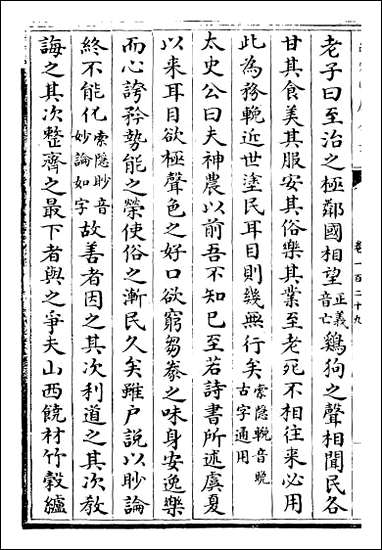 卷一百二十九
老子曰至治之極鄰國相望正義音亡鷄狗之聲相聞民各
甘其食美其服安其俗樂其業至老死不相往來必用
此為務輓近世塗民耳目則幾無行矣索隱輓音晚古字通用
太史公曰夫神農以前吾不知已至若詩書所述虞夏
以來耳目欲極聲色之好口欲窮芻豢之味身安逸樂
而心誇矜勢能之榮使俗之漸民久矣雖户說以眇論
終不能化索隱眇音妙論如字故善者因之其次利道之其次教
誨之其次整齊之最下者與之爭夫山西饒材竹穀纑